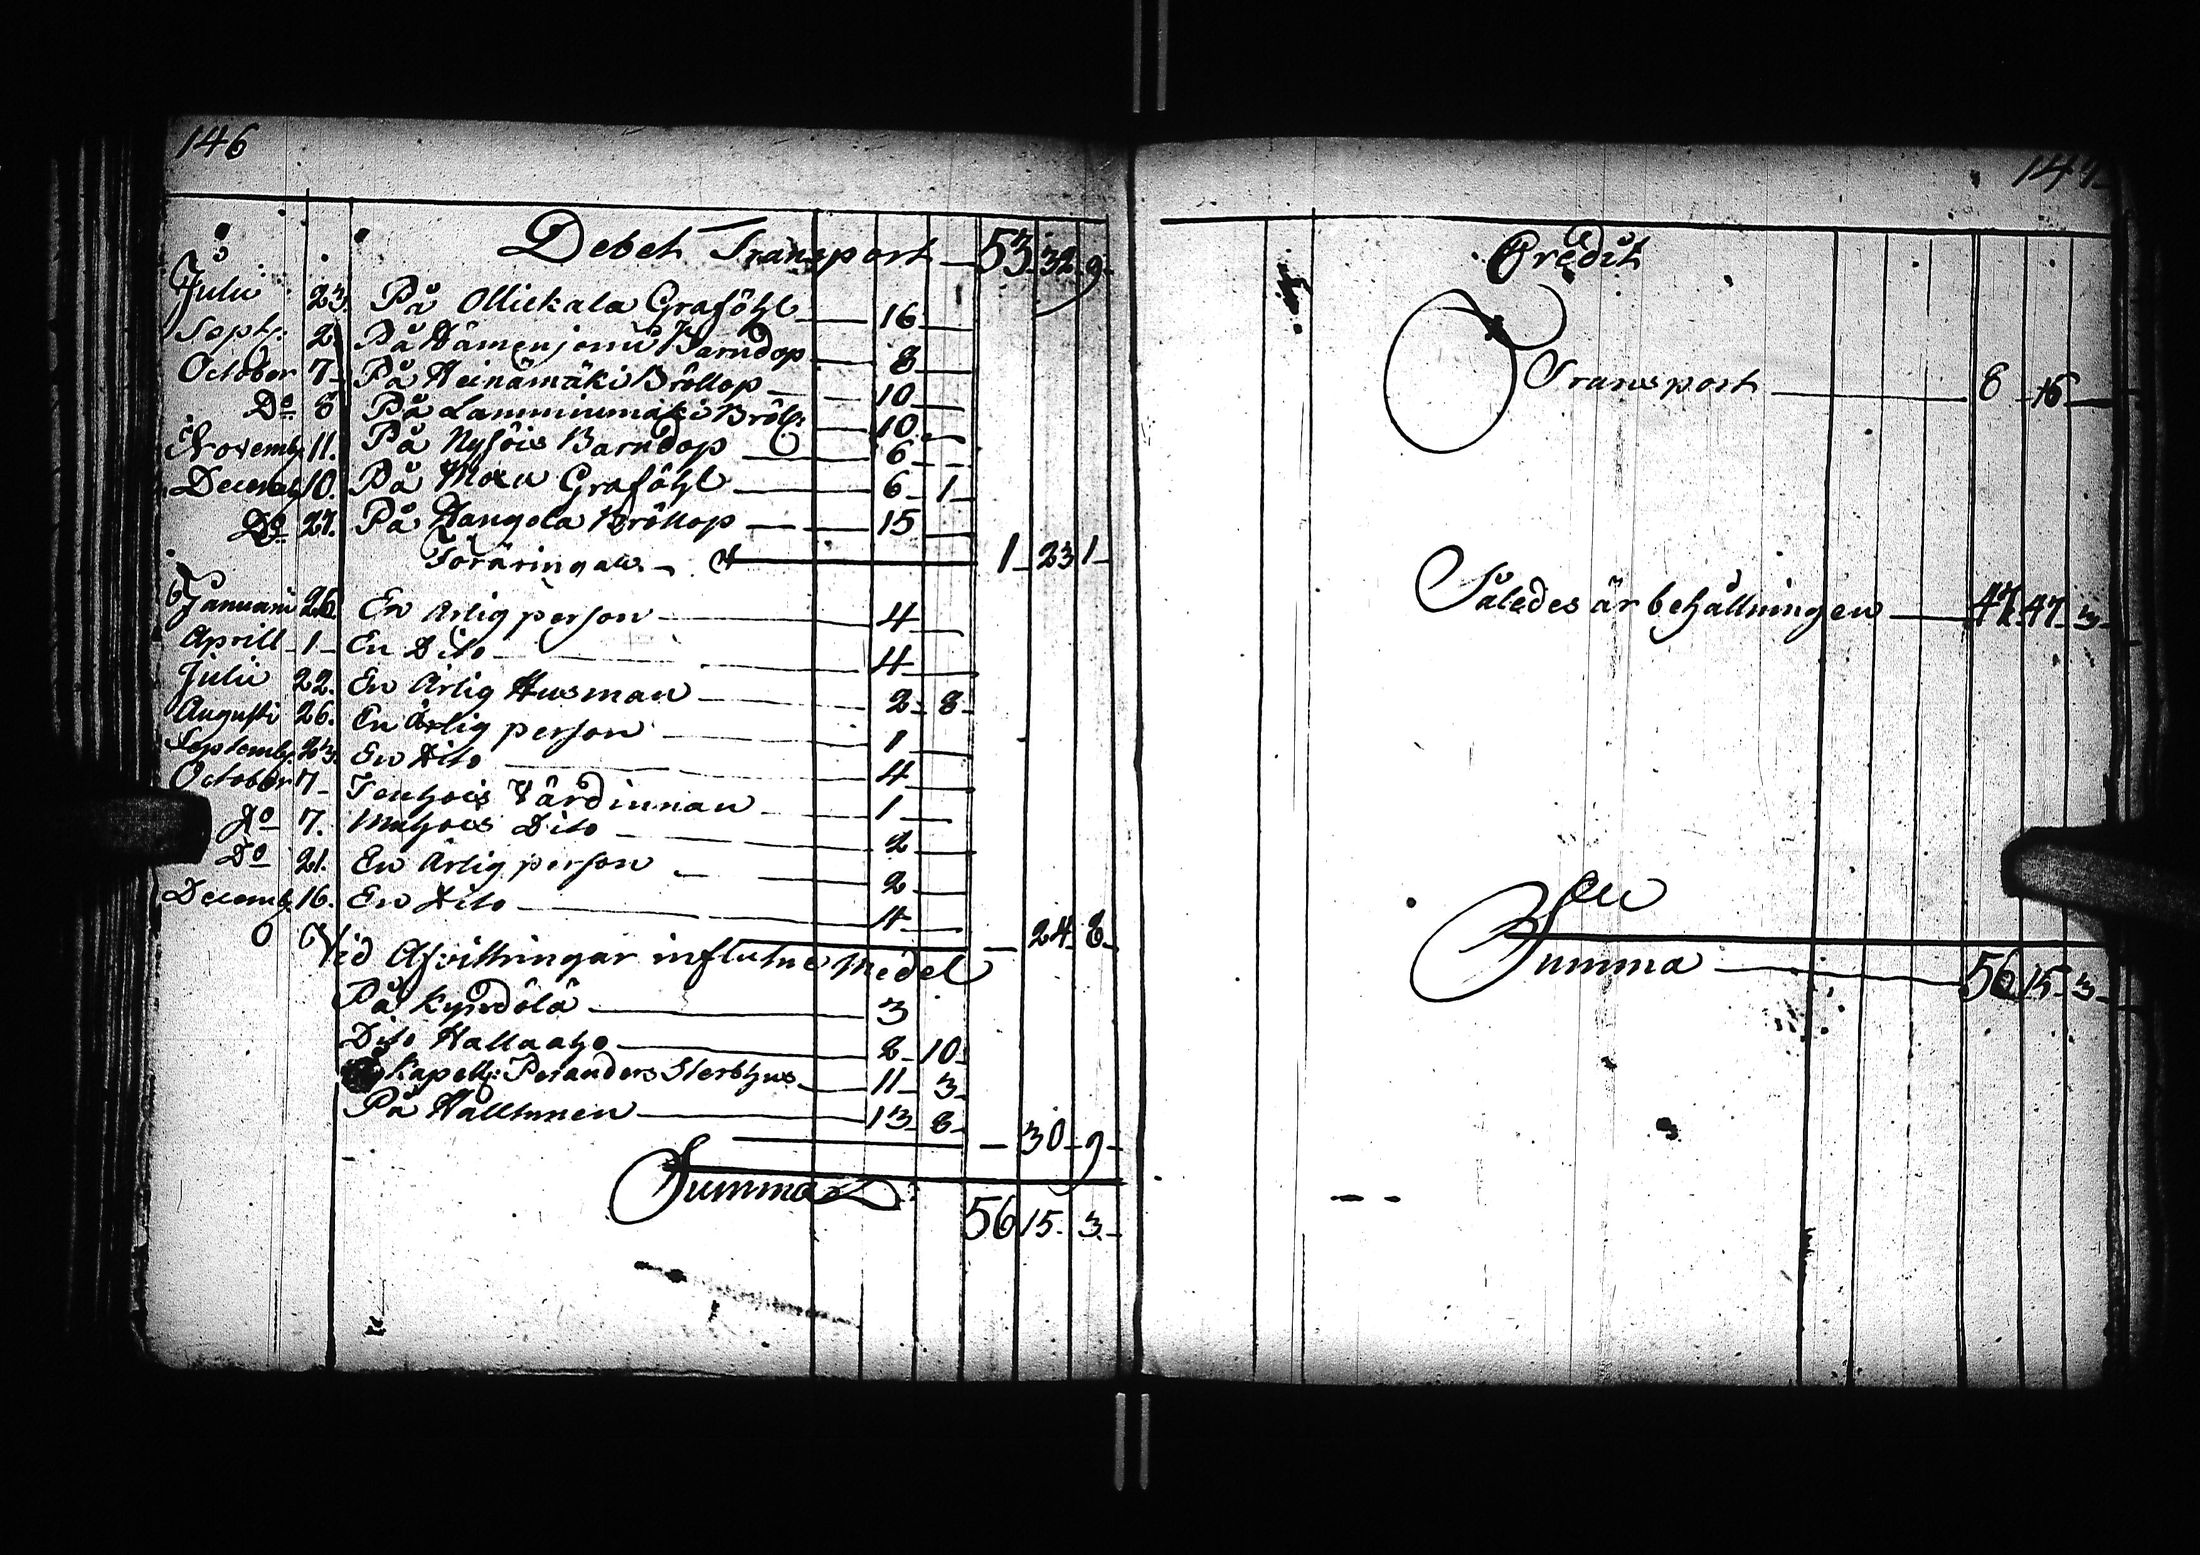 146
Debet Transport — 53. 32. 9.
Julii 23. På Ollickala Graföhl — 16 —
Sept: 2. På Hämenjoau Barndop — 8 —
October 7 — På Heinämäki Bröllop — 10 —
Do 8 På Lamminmäki Bröll: — 10 —
Novemb. 11. På Nysöis Barndop — 6 — —
Decemb. 10. På Moen Graföhl — 6 — 1 —
Do 27. På Hangola Bröllop — 15 —
Föräringar. — 1 — 23 1 —
Januarii 26 En Ärlig person — 4 —
Aprill — 1 — En Dito — 4 —
Julii 22. En Ärlig Husman — 2 — 8 —
Augusti 26. En ärlig person — 1 —
Septemb. 23. En Dito — 4 —
October 7 — Värdinnan — 1 —
Do 7. Dito — 2
Do 21. En Ärlig person — 2 —
Decemb. 16. En Dito — 4 —
— 24. 8 —
Vid Afvittringar influtne Medel
På Kyrdölä — 3
Dito Hallaaho — 2 — 10.
Kapell: Peranders Sterbhus — 11 — 3 —
På Hålltunen — 13 — 8 —
— 30 — 9 —
Summa
56 15. 3 —
147
Credit
Transport — 8 — 16 —
Således är behållningen — 47. 47 — 3 —
Summa — 56 15 — 3 —